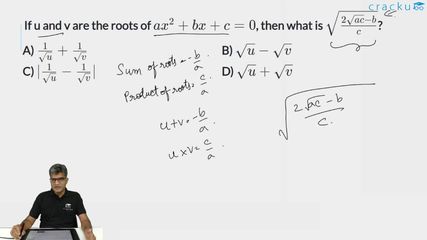 cracku
If u and v are the roots of $ax^2 + bx + c = 0$, then what is $\sqrt{\frac{2\sqrt{ac}-b}{c}}$?
A) $\frac{1}{\sqrt{u}} + \frac{1}{\sqrt{v}}$ B) $\sqrt{u} - \sqrt{v}$
C) $|\frac{1}{\sqrt{u}} - \frac{1}{\sqrt{v}}|$ D) $\sqrt{u} + \sqrt{v}$
Sum of roots = $-\frac{b}{a}$
Product of roots = $\frac{c}{a}$
$u+v = -\frac{b}{a}$
$u \times v = \frac{c}{a}$
$\sqrt{\frac{2\sqrt{ac} - b}{c}}$